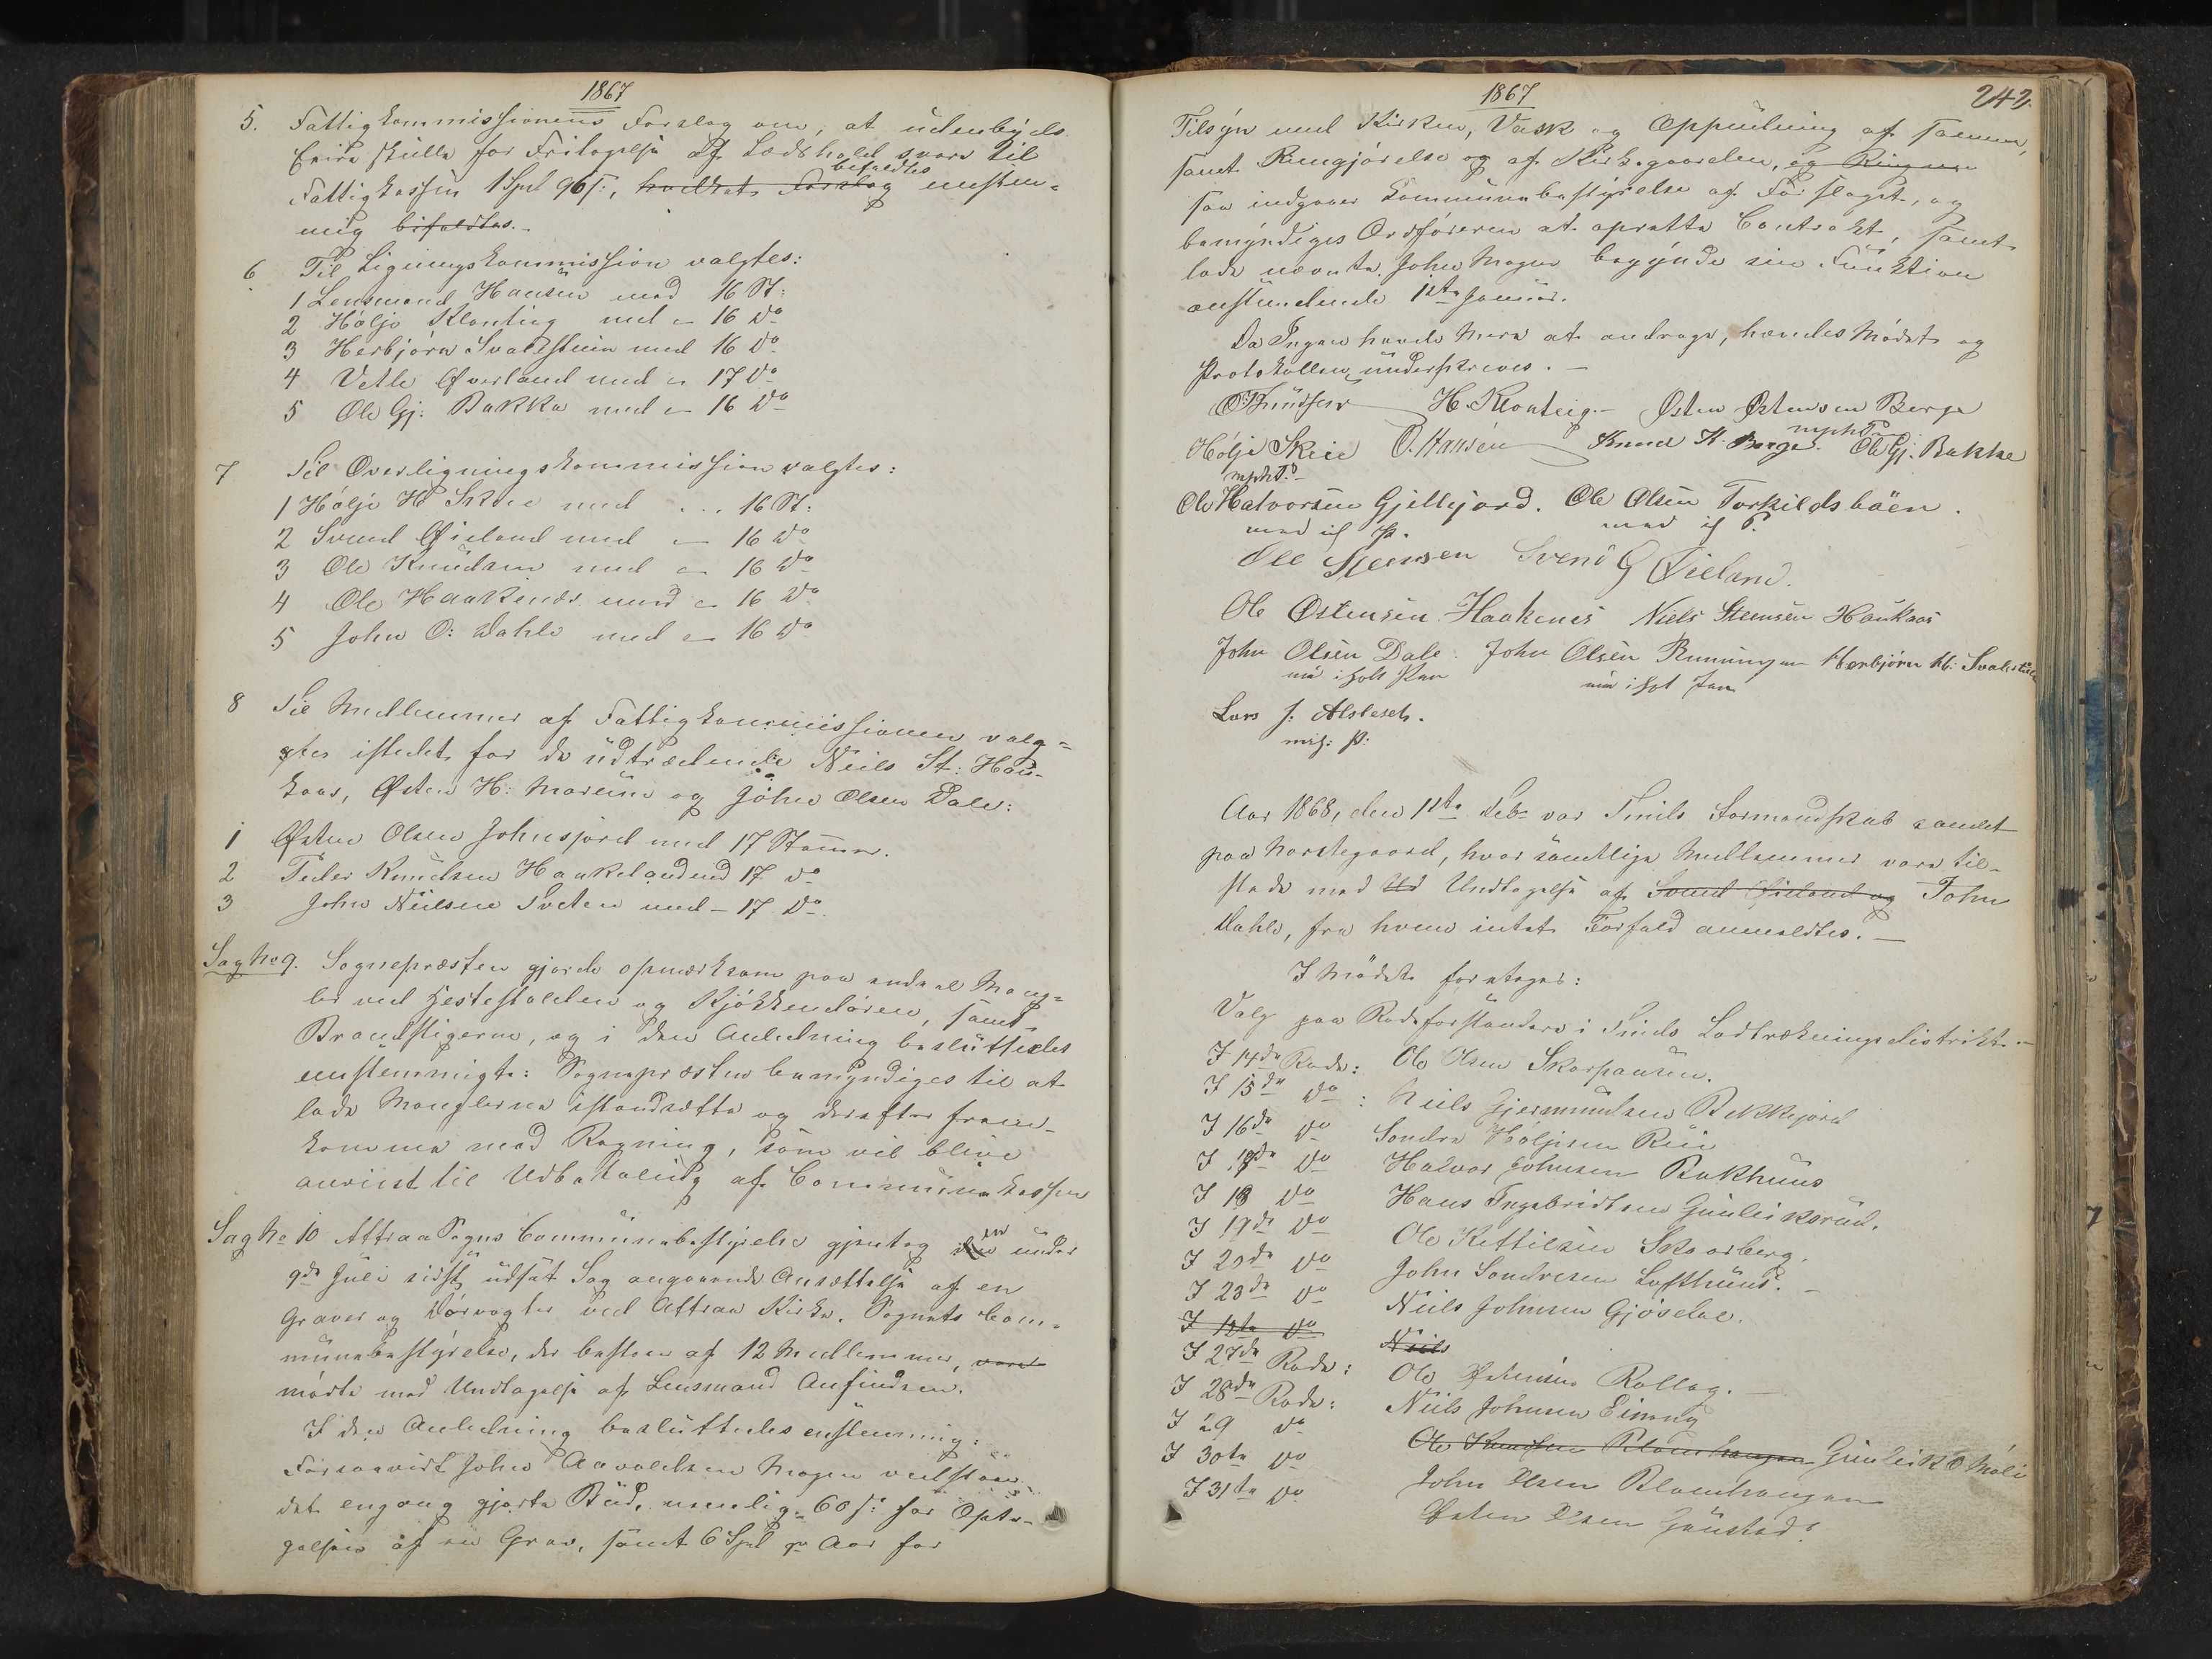 1867
5. Fattigkommissionens Forslag om, at udenbyds
Eiere skulle for Fritagelse af Lædshold svare til
bifaldtes
Fattigkassen 1 Spd 96 s:, hvilket Forslag eenstem-
mig bifaldtes.-
6 Til Ligningskommission valgtes:
1 Lensmand Hansen med 16 St:
2 Hølje Klonteig med - 16 Do
3 Herbjørn Svalestuen med 16 Do
4 Vetle Øverland med - 17 Do
5 Ole Gj: Bakke med - 16 Do
7 Til Overligningskommission valgtes:
1 Hølje H Skeie med ... 16 St:
2 Svend Øieland med - 16 Do
3 Ole Knudsen med - 16 Do
4 Ole Haakenes med - 16 Do
5 John O: Dahle med - 16 Do
8 Til Medlemmer af Fattigkommissionen valg-
gtes istedet for de udtrædende Niels St: Hau-
kaas, Østen H: Marum og John Olsen Dale:
1 Østen Olsen Johnsjord med 17 Stemm.
2 Peder Knudsen Haukeland med 17 do
3 John Nielsen Sveten med - 17 Do
Sag No 9. Sognepræsten gjorde opmærksom paa endeel Mang-
ler ved Hestestalden og Kjøkkendøren, samt
Brandstigerne, og i den Anledning besluttedes
eenstemmigt: Sognepræsten bemyndiges til at
lade Manglerne istandsætte og derefter frem-
komme med Regning, som vil blive
anviist til Udbetaling af Communekassen
Sag No 10 Attraa Sogns Communebestyrelse gjentog den en under
9de Juli sidst udsat Sag angaaende Ansættelse af en
Graver og Dørvogter ved Attraa Kirke. Sognets Com-
munebestyrelse, der bestaar af 12 Medlemmer, vare
mødte med Undtagelse af Lensmand Anfindsen.
I den Anledning besluttedes enstemmig:
Forsaavidt John Aavoldsen Mogen vedstaar
det engang gjorte Bud, nemlig 60 s: for Opta-
gelsen af en Grav, samt 6 Spd pr Aar for
1867
242.
Tilsyn med Kirken, Vask og Oppudsning af samme,
samt Rengjørelse og af Kirkegaarden, og Ringen
saa indgaaer Communebestyrelse af Forslaget, og
bemyndiges Ordføreren at oprette Contrakt, samt
lade nævnte John Mogen begynde sin Funktion
anstundende 1ste Januar.
Da Ingen havde Mere at andrage, hævedes Mødet og
Protokollen underskreves. -
O Knudsen H. Klonteig.- Østen Østensen Berge
mphP.
Hølje Skeie O. Hansen Knud K. Berge. Ole Gj. Bakke
mphP.-
Ole Halvorsen Gjellejord. Ole Olsen Torkildsbäen.
med if P. med if P.
Ole Steensen Svend G Øieland.
Ole Østensen Haakenes Niels Steensen Haukaas
John Olsen Dale. John Olsen Runningen Herbjørn H: Svalestuen
Lars J:
Aar 1868, den 1ste Feb. var Tinds Formandskab samlet
paa Marstegaard, hvor samtlige Medlemmer vare til-
stede med Ud Undtagelse af Svend Øieland og John
Dahle, fra hvem intet Forfald anmeldtes. -
I Mødet foretoges:
Valg paa Rodeforstandere i Tinds Lodtrækningsdistrikt.-
I 14de Rode: Ole Olsen Skarpaasen.
I 15de Do : Niels Gjermundsen Bekkejord
I 16de Do Sondre Høljesen Rue
I 17de Do Halvor Johnsen Bakhuus
I 18 Do Hans Ingebridtsen Gunleiksrud.
I 19de Do Ole Kittilsen Skaarberg.
I 20de Do John Sondresen Lofthuus. -
I 23de Do Niels Johnsen Gjøsdal.
I 12te Do Niels
I 27de Rode: Ole Østensen Rollag. -
I 28de Rode: Niels Johnsen Einung
I 29 do Ole Knudsen Gunleik O Mæli
I 30te Do John Olsen Blomhaugen
I 31te Do Østen Olsen Gaustad.